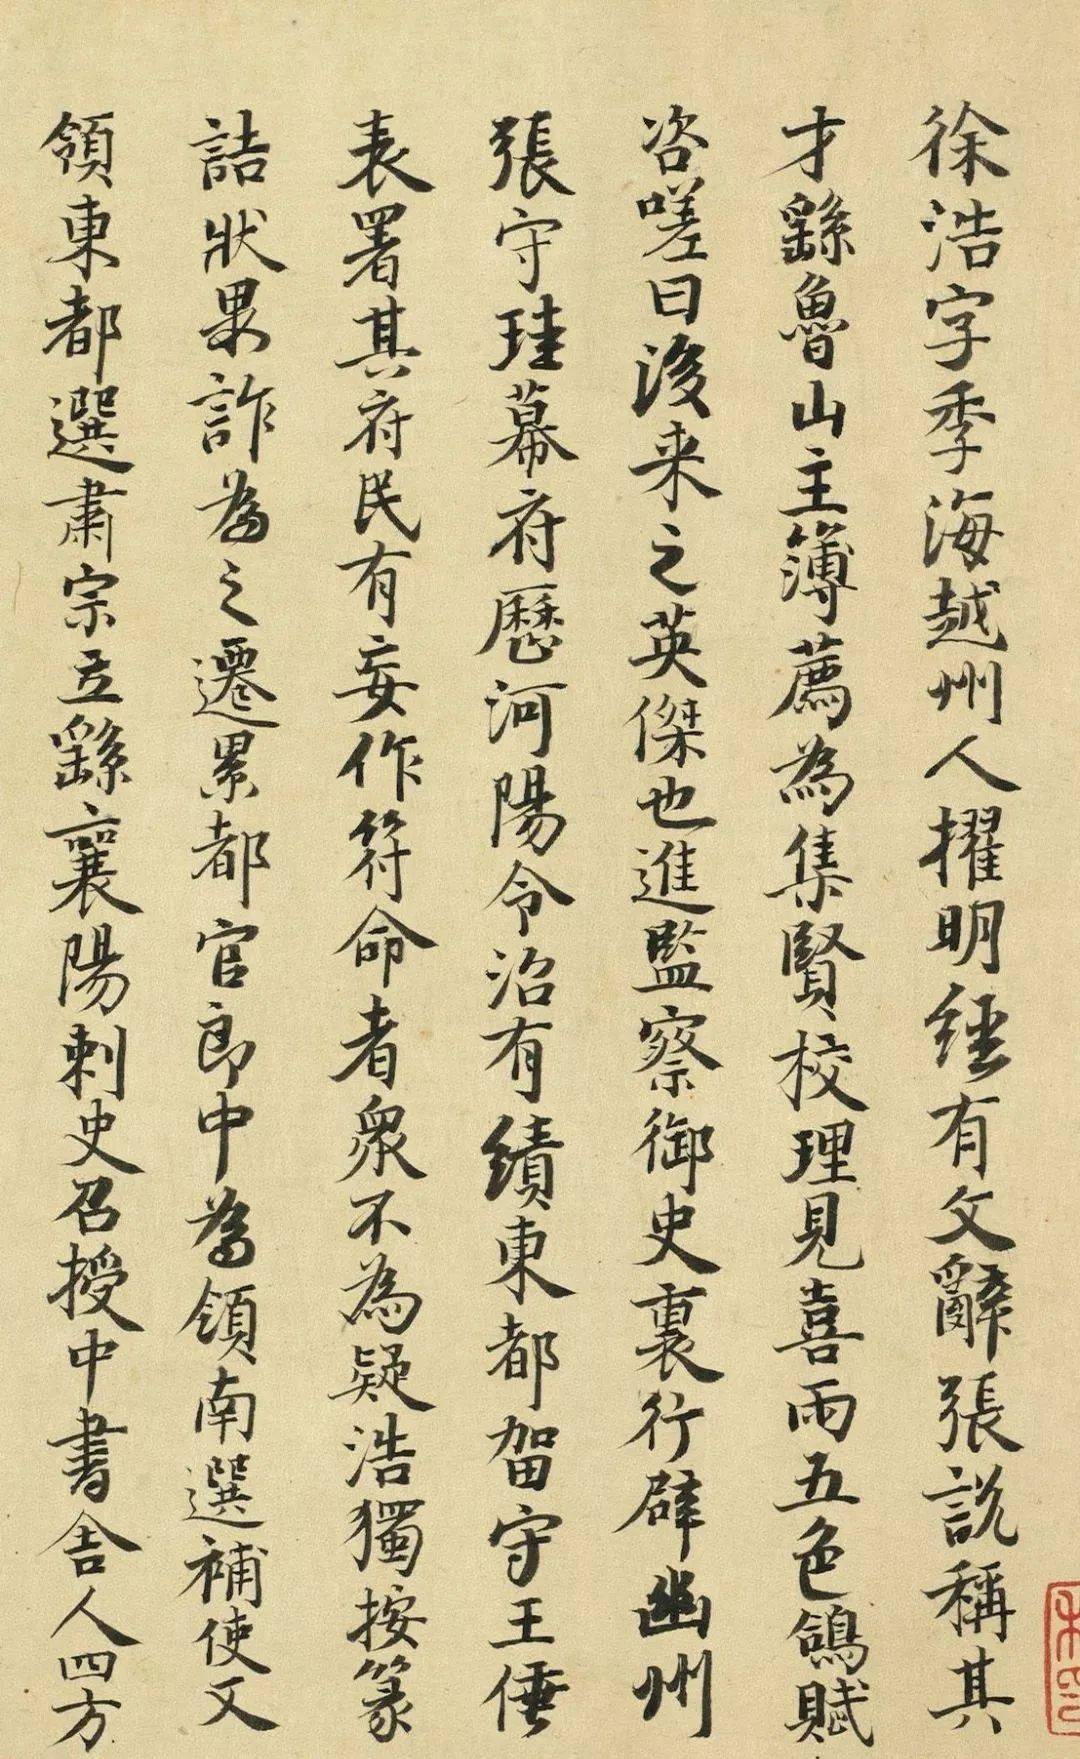 徐浩字季海越州人擢明經有文辭張說稱其
才繇魯山主簿薦為集賢校理見喜雨五色鴿賦
咨嗟曰後来之英傑也進監察御史裏行辟幽州
張守珪幕府歷河陽令治有績東都留守王倕
表署其府民有妄作符命者衆不為疑浩獨按篆
詰狀果詐為之遷累都官郎中為領南選補使又
領東都選肅宗立繇襄陽刺史召授中書舎人四方